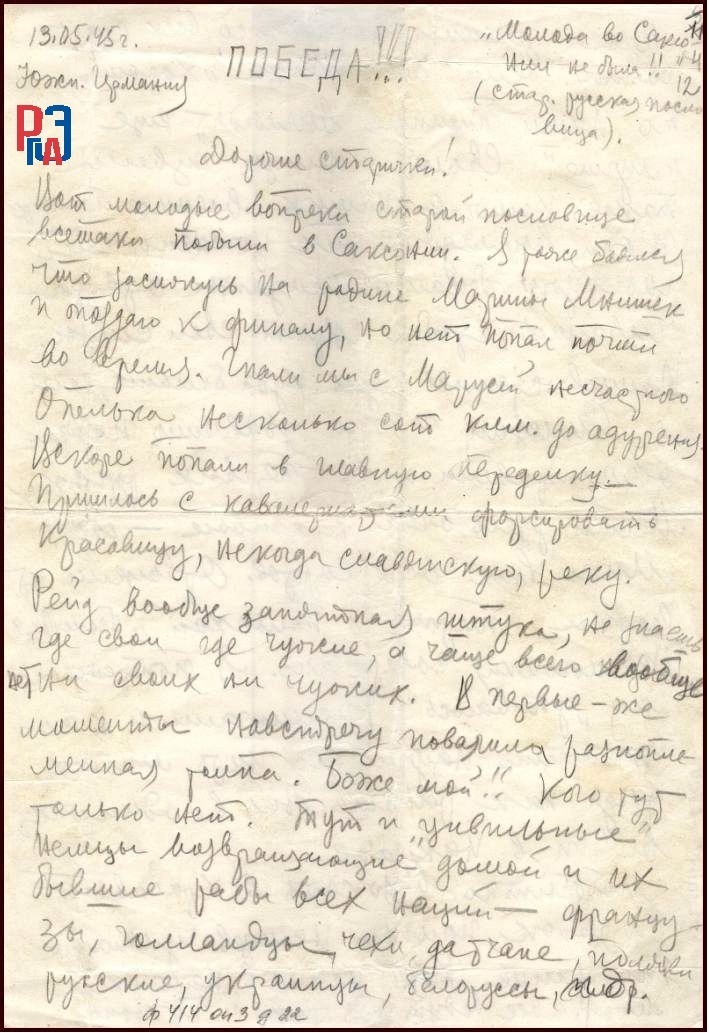 13.05.45 г.
Южн. Германия
ПОБЕДА!!!
„Молода во Саксо
нии не была!!"
(стар. русская посло
вица).
11
4
12
РГАЭ
Дорогие старички!
Вот молодые вопреки старой пословице
всетаки побыли в Саксонии. Я тоже боялся
что засижусь на родине Марины Мнишек
и опоздаю к финалу, но нет попал почти
во время. Гнали мы с Марусей несчастного
Опелька несколько сот клм. до одурения.
Вскоре попали в главную переделку.
Пришлось с кавалеристами форсировать
красавицу, некогда славянскую, реку.
Рейд вообще занятная штука, не знаешь
где свои где чужие, а чаще всего вообще
нет ни своих ни чужих. В первые-же
моменты навстречу повалила разнопле
менная толпа. Боже мой!! Кого тут
только нет. Тут и „цивильные"
немцы возвращающие домой и их
бывшие рабы всех наций — францу
зы, голландцы, чехи, датчане, поляки
русские, украинцы, белоруссы, и др.
ф 414 оп 3 д 22